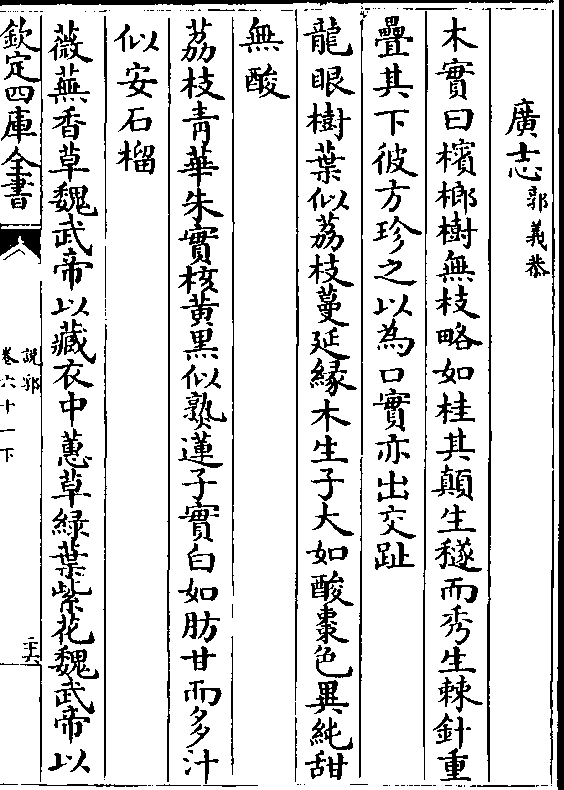 廣志郭義恭
木實曰檳榔樹無枝略如桂其顛生穟而秀生棘針重
疊其下彼方珍之以為口實亦出交趾
龍眼樹葉似荔枝蔓延緣木生子大如酸棗色異純甜
無酸
荔枝青華朱實核黃黑似熟蓮子實白如肪甘而多汁
似安石榴
薇蕪香草魏武帝以藏衣中蕙草緑葉紫花魏武帝以
欽定四庫全書
說郛
卷六十一下
二十六